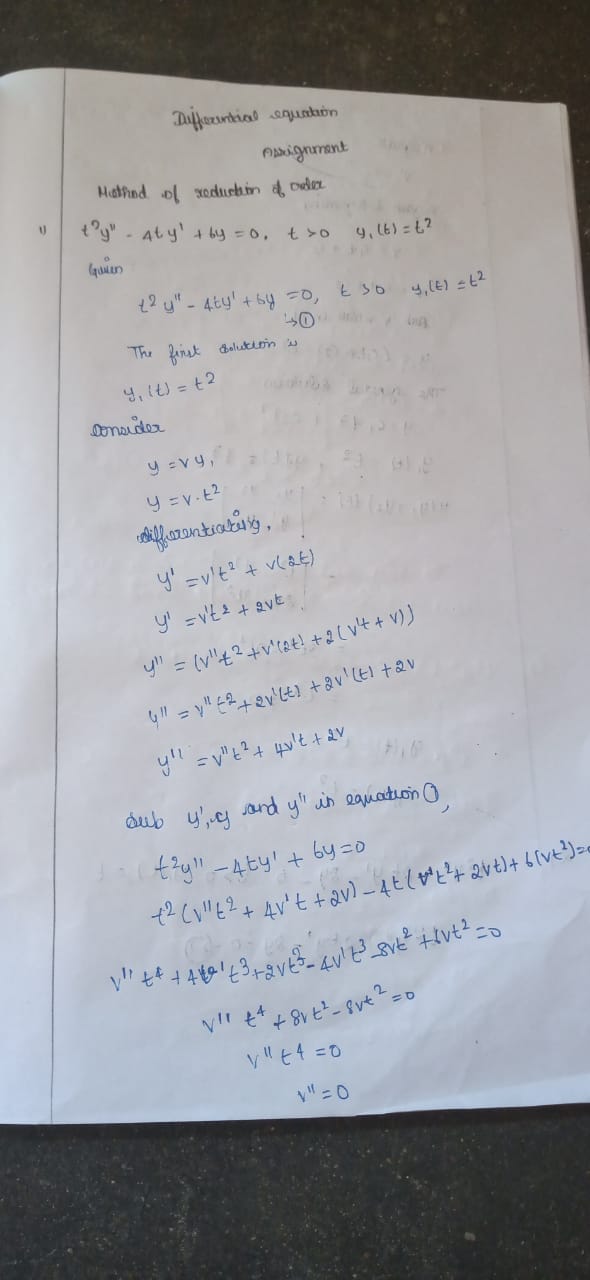 Differential equation
Assignment
Method of reduction of order
1) t²y'' - 4ty' + 6y = 0, t > 0 y₁(t) = t²
Given
t²y'' - 4ty' + 6y = 0, t > 0 y₁(t) = t²
→①
The first solution is
y₁(t) = t²
consider
y = vy₁
y = v·t²
differentiating,
y' = v't² + v(2t)
y' = v't² + 2vt
y'' = (v''t² + v'(2t) + 2(v't + v))
y'' = v''t² + 2v'(t) + 2v'(t) + 2v
y'' = v''t² + 4v't + 2v
Sub y', y and y'' in equation ①,
t²y'' - 4ty' + 6y = 0
t²(v''t² + 4v't + 2v) - 4t(v't² + 2vt) + 6(vt²) = 0
v''t⁴ + 4v't³ + 2vt² - 4v't³ - 8vt² + 6vt² = 0
v''t⁴ + 8vt² - 8vt² = 0
v''t⁴ = 0
v'' = 0